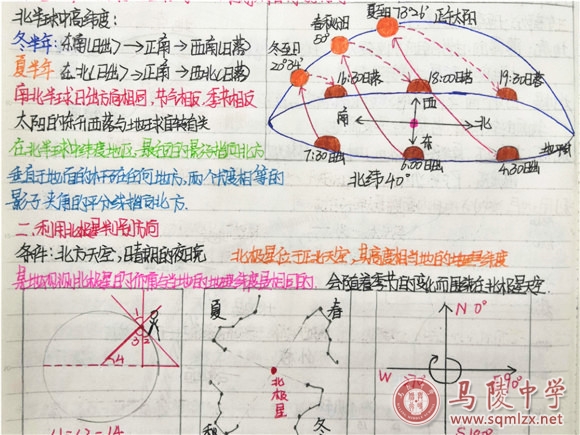 北半球中高纬度:
冬半年:东南(日出)→正南→西南(日落)
夏半年:东北(日出)→正南→西北(日落)
南北半球日出方向相同,节气相反,季节相反
太阳的东升西落与地球自转有关
在北半球中纬度地区,最短的影子指向北方
垂直于地面的杆子在任何地方,两个长度相等的
影子夹角的平分线指向北方.
二.利用北极星判别方向
条件:北方天空,晴朗的夜晚
北极星位于正北天空,其高度相当地的地理纬度
某地观测北极星的仰角与当地的地理纬度是相同的.
会随着季节的变化而围绕在北极星天空
春秋分日
50°
夏至日
正午太阳
冬至日
16:30日落
18:00日落
19:30日落
西
南
北
东
地平圈
7:30日出
6:00日出
4:30日出
北纬40°
1
3
2
4
夏
春
北极星
秋
冬
N 0°
W
90°
S 180°
马陵中学
www.sqmlzx.net